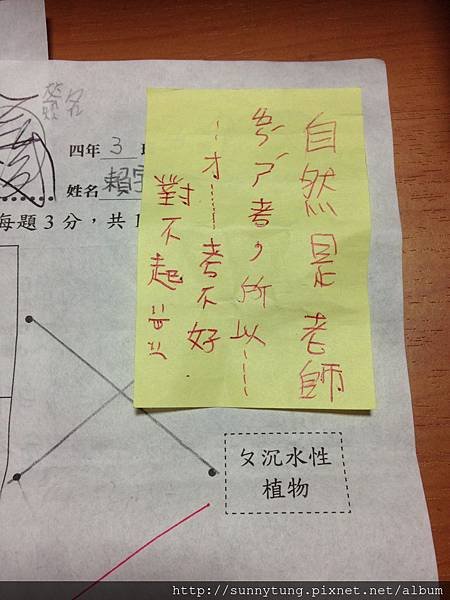 簽名
四年 3
姓名 賴
每題3分，共1
自然是老師
考，所以……
……才……考不好
對不起
ㄆ沉水性
植物
http://sunnytung.pixnet.net/album